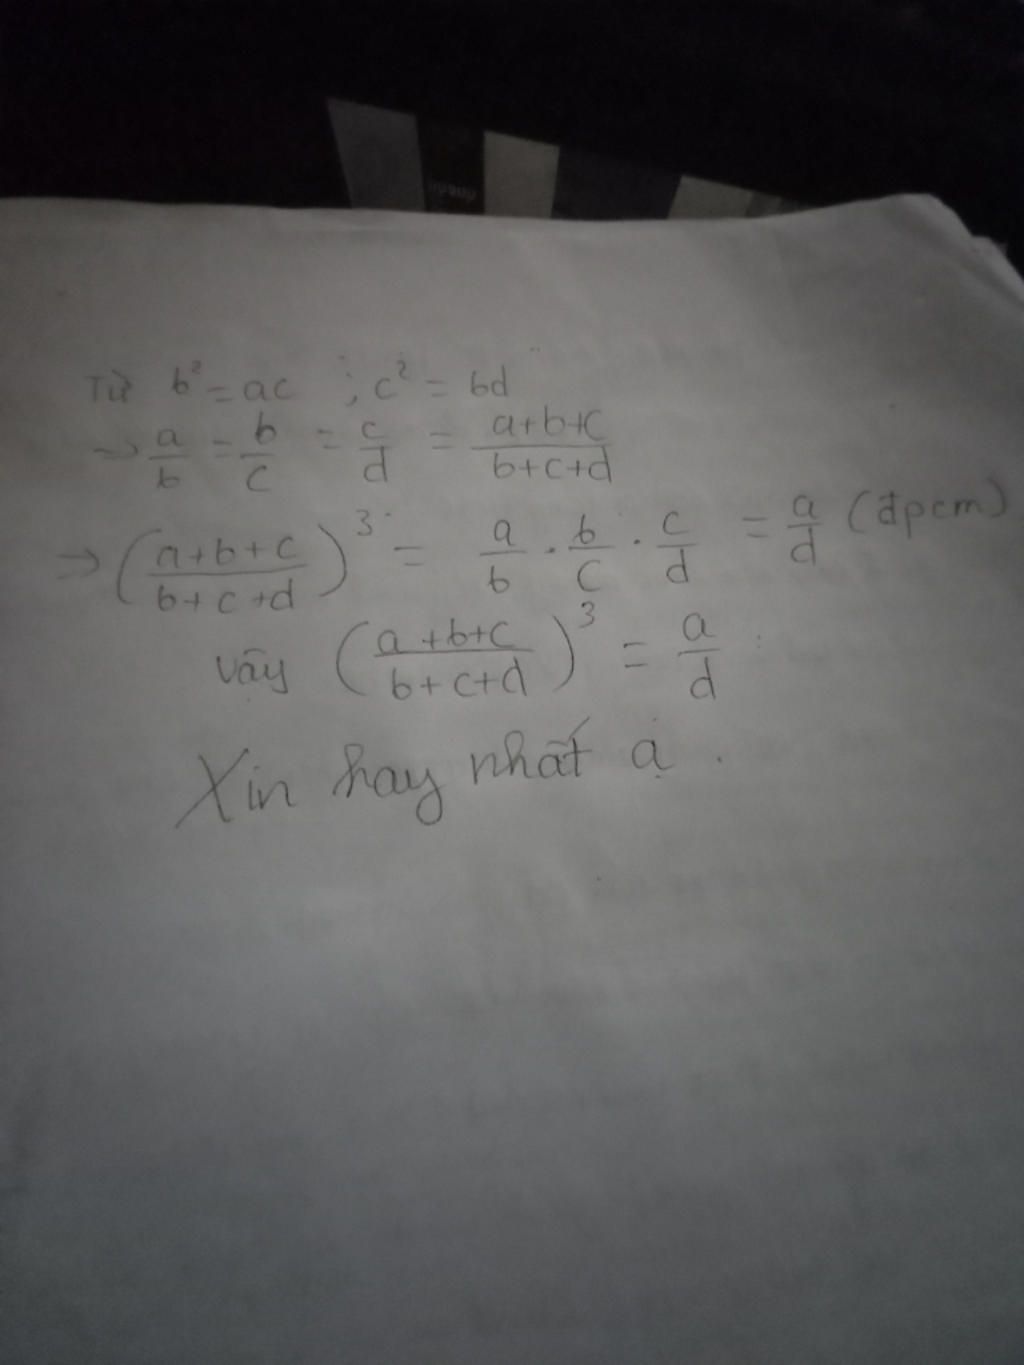 Từ b² = ac ; c² = bd
→ a/b = b/c = c/d = (a+b+c)/(b+c+d)
→ ((a+b+c)/(b+c+d))³ = a/b · b/c · c/d = a/d (đpcm)
Vậy ((a+b+c)/(b+c+d))³ = a/d
Xin hay nhất ạ .